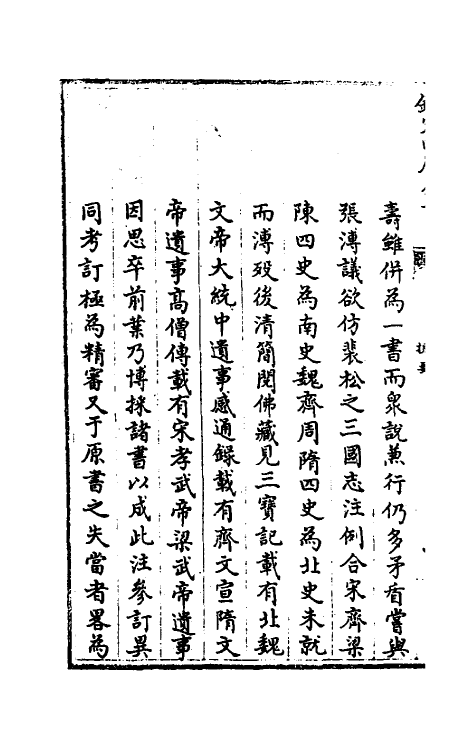 壽雖併為一書而衆說兼行仍多矛盾嘗與
張溥議欲仿裴松之三國志注例合宋齊梁
陳四史為南史魏齊周隋四史為北史未就
而溥殁後清簡閱佛藏見三寶記載有北魏
文帝大統中遺事感通錄載有齊文宣隋文
帝遺事髙僧傳載有宋孝武帝梁武帝遺事
因思卒前業乃博採諸書以成此注參訂異
同考訂極為精審又于原書之失當者畧為